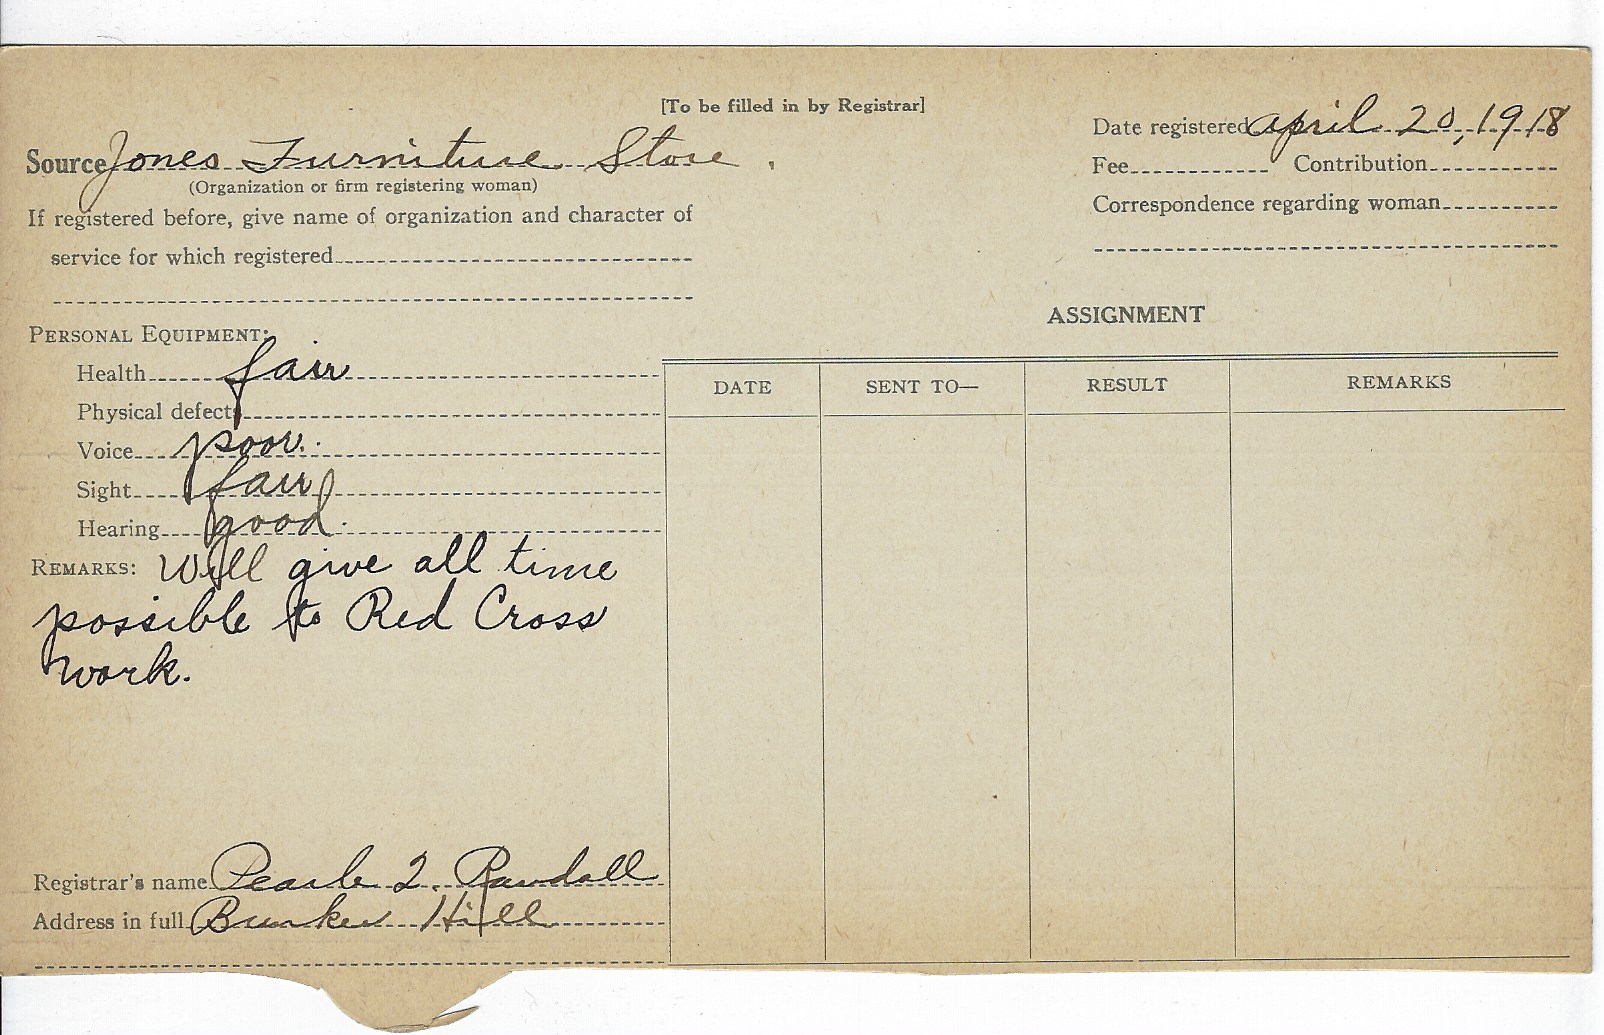 [To be filled in by Registrar]
Source Jones Furniture Store.
(Organization or firm registering woman)
If registered before, give name of organization and character of
service for which registered
Date registered April 20, 1918
Fee Contribution
Correspondence regarding woman
PERSONAL EQUIPMENT:
Health fair
Physical defects
Voice poor.
Sight fair
Hearing good.
REMARKS: Will give all time
possible to Red Cross
work.
Registrar's name Pearle Q. Randall
Address in full Bunker Hill
ASSIGNMENT
DATE SENT TO— RESULT REMARKS